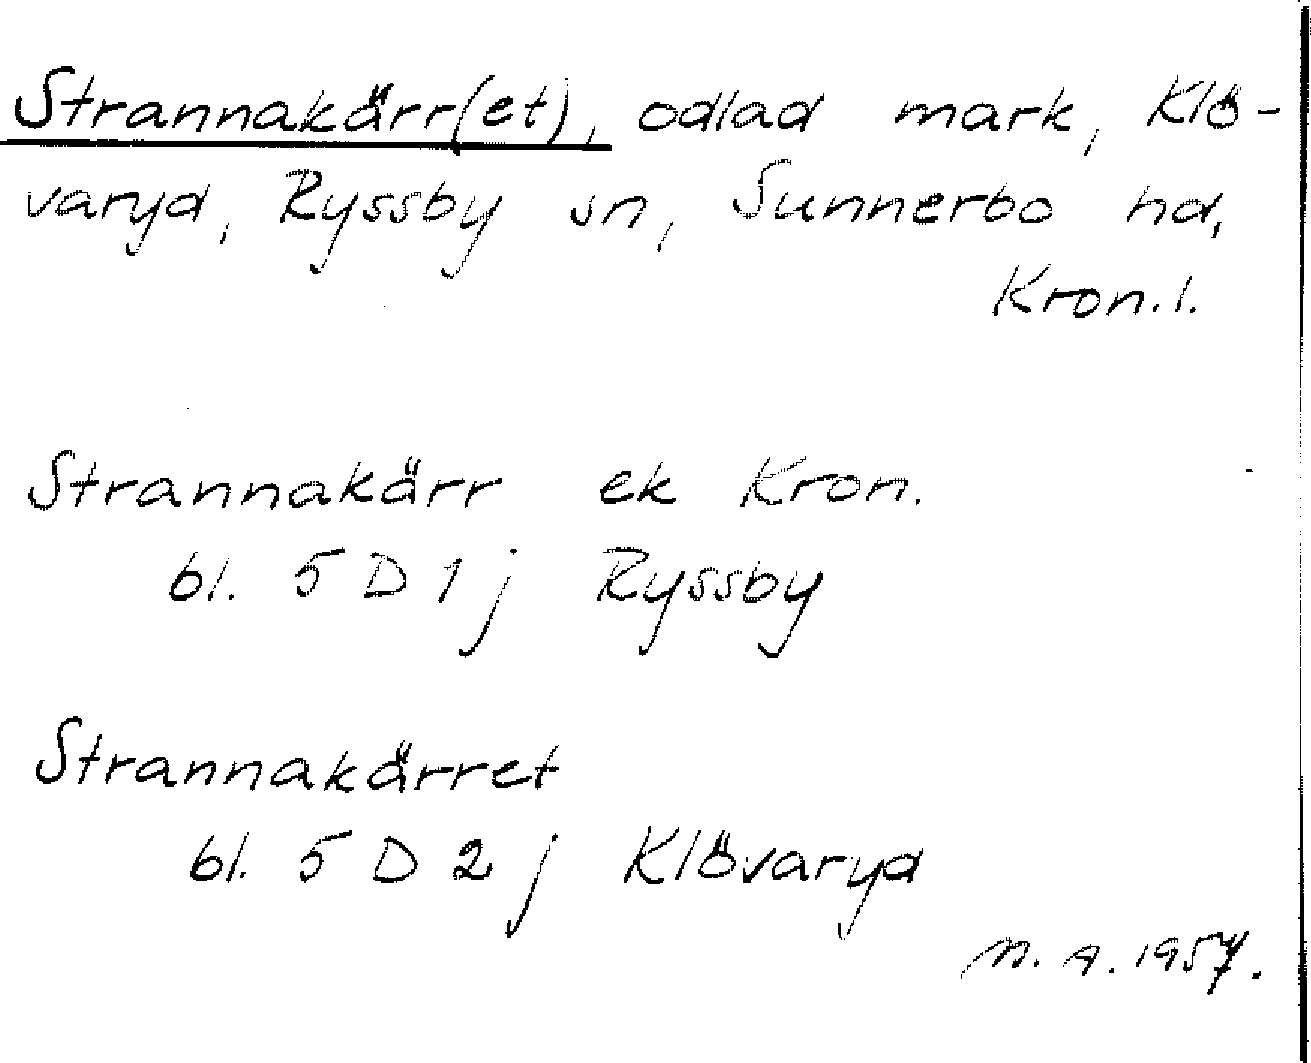 Strannakärr(et), odlad mark, Klö-
varyd, Ryssby sn, Sunnerbo hd,
Kron.l.
Strannakärr ek Kron.
bl. 5 D 1 j Ryssby
Strannakärret
bl. 5 D 2 j Klövaryd
n. a. 1957.